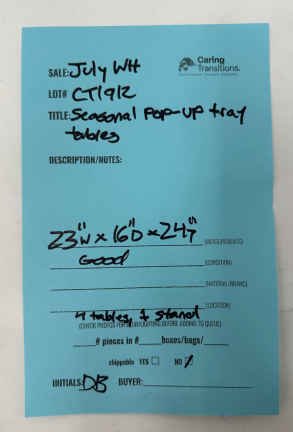 Caring
Transitions.
SALE: July WH
LOT# CT1912
TITLE: Seasonal Pop-up tray
tables
DESCRIPTION/NOTES:
23"W x 16"D x 24"T (MEASUREMENTS)
Good (CONDITION)
(LOCATION)
4 tables, 1 stand
(CHECK PHOTOS FOR BEFORE ADDING TO QUEUE)
# pieces in # boxes/bags/
shippable YES NO
INITIALS: DB BUYER: